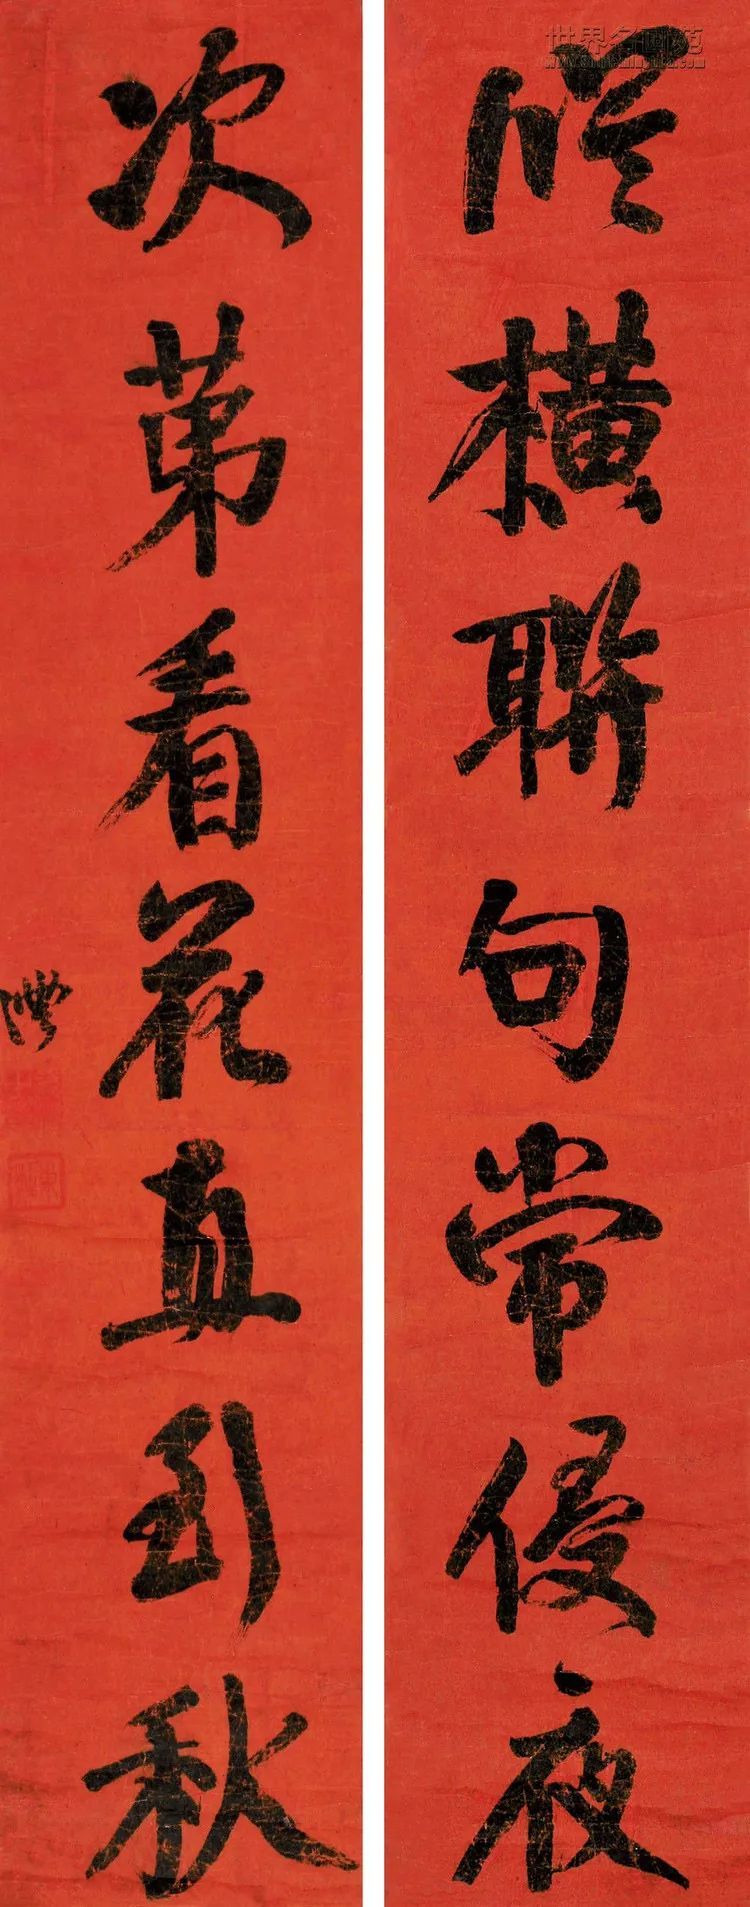 世界名画苑
縱橫聯句常侵夜
次第看花直到秋
澧